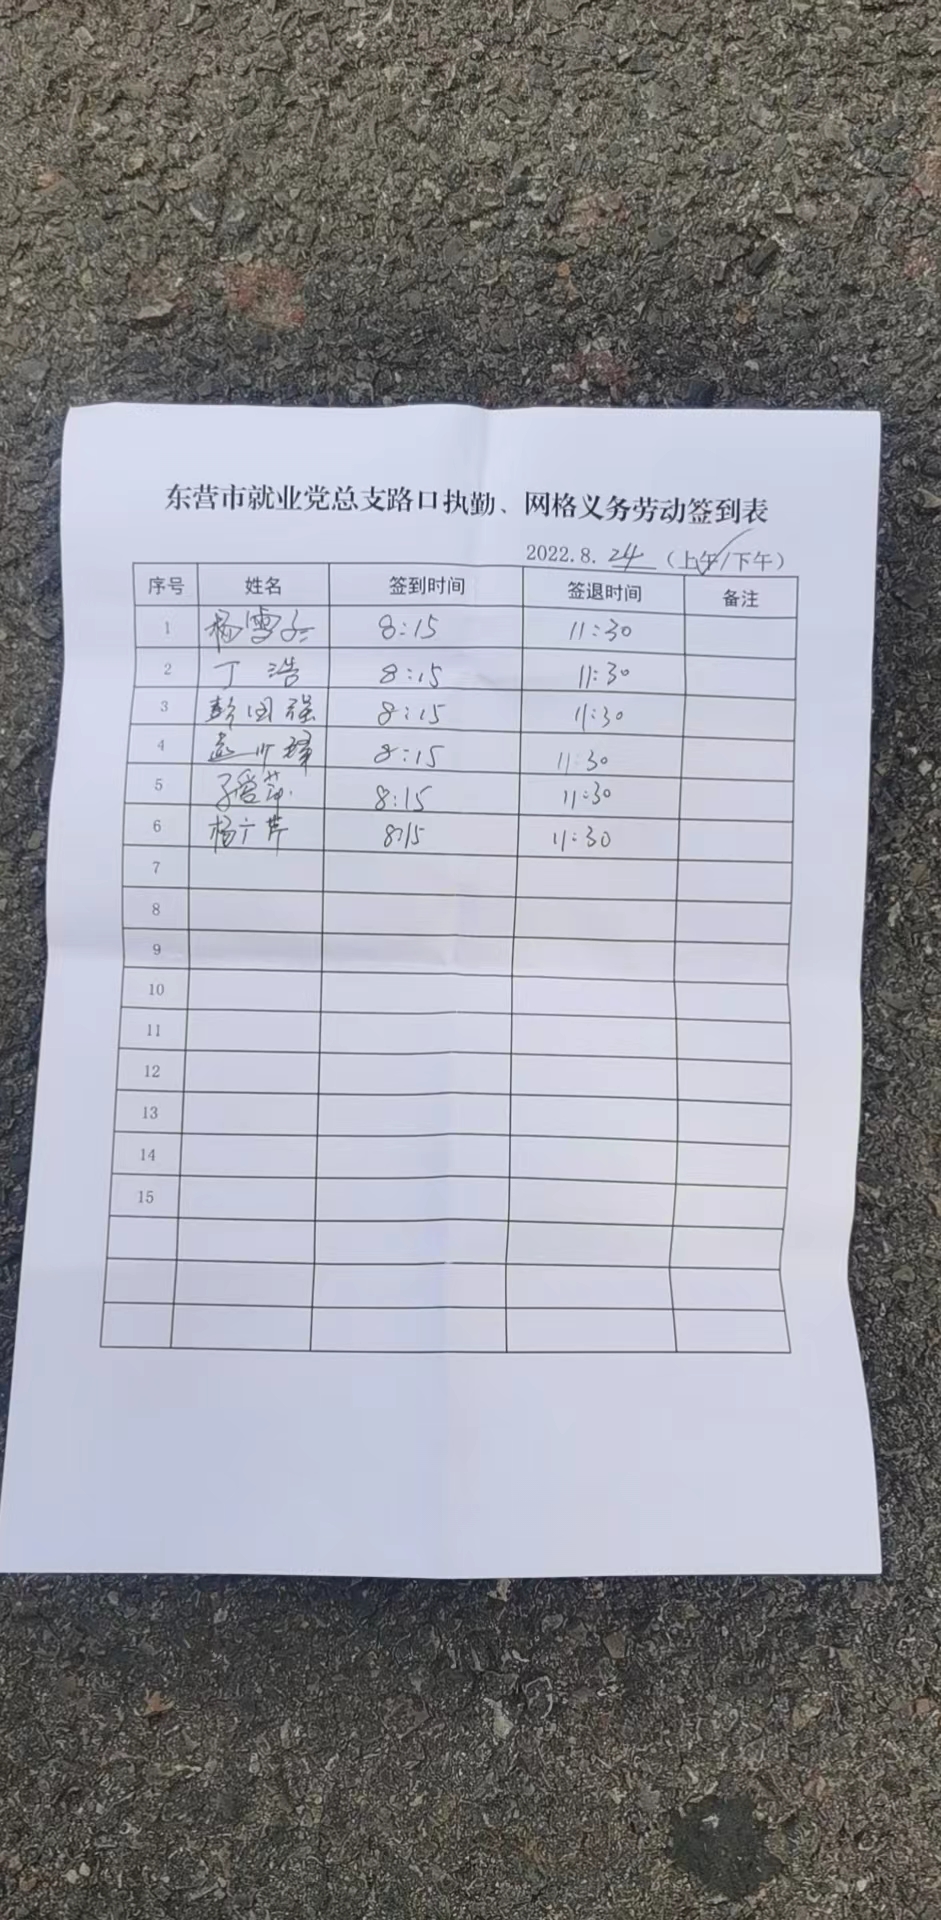 东营市就业党总支路口执勤、网格义务劳动签到表
2022.8.24（上午/下午）
序号 姓名 签到时间 签退时间 备注
1 杨雪 8:15 11:30
2 丁浩 8:15 11:30
3 彭国强 8:15 11:30
4 8:15 11:30
5 爱萍 8:15 11:30
6 杨广芹 8:15 11:30
7
8
9
10
11
12
13
14
15